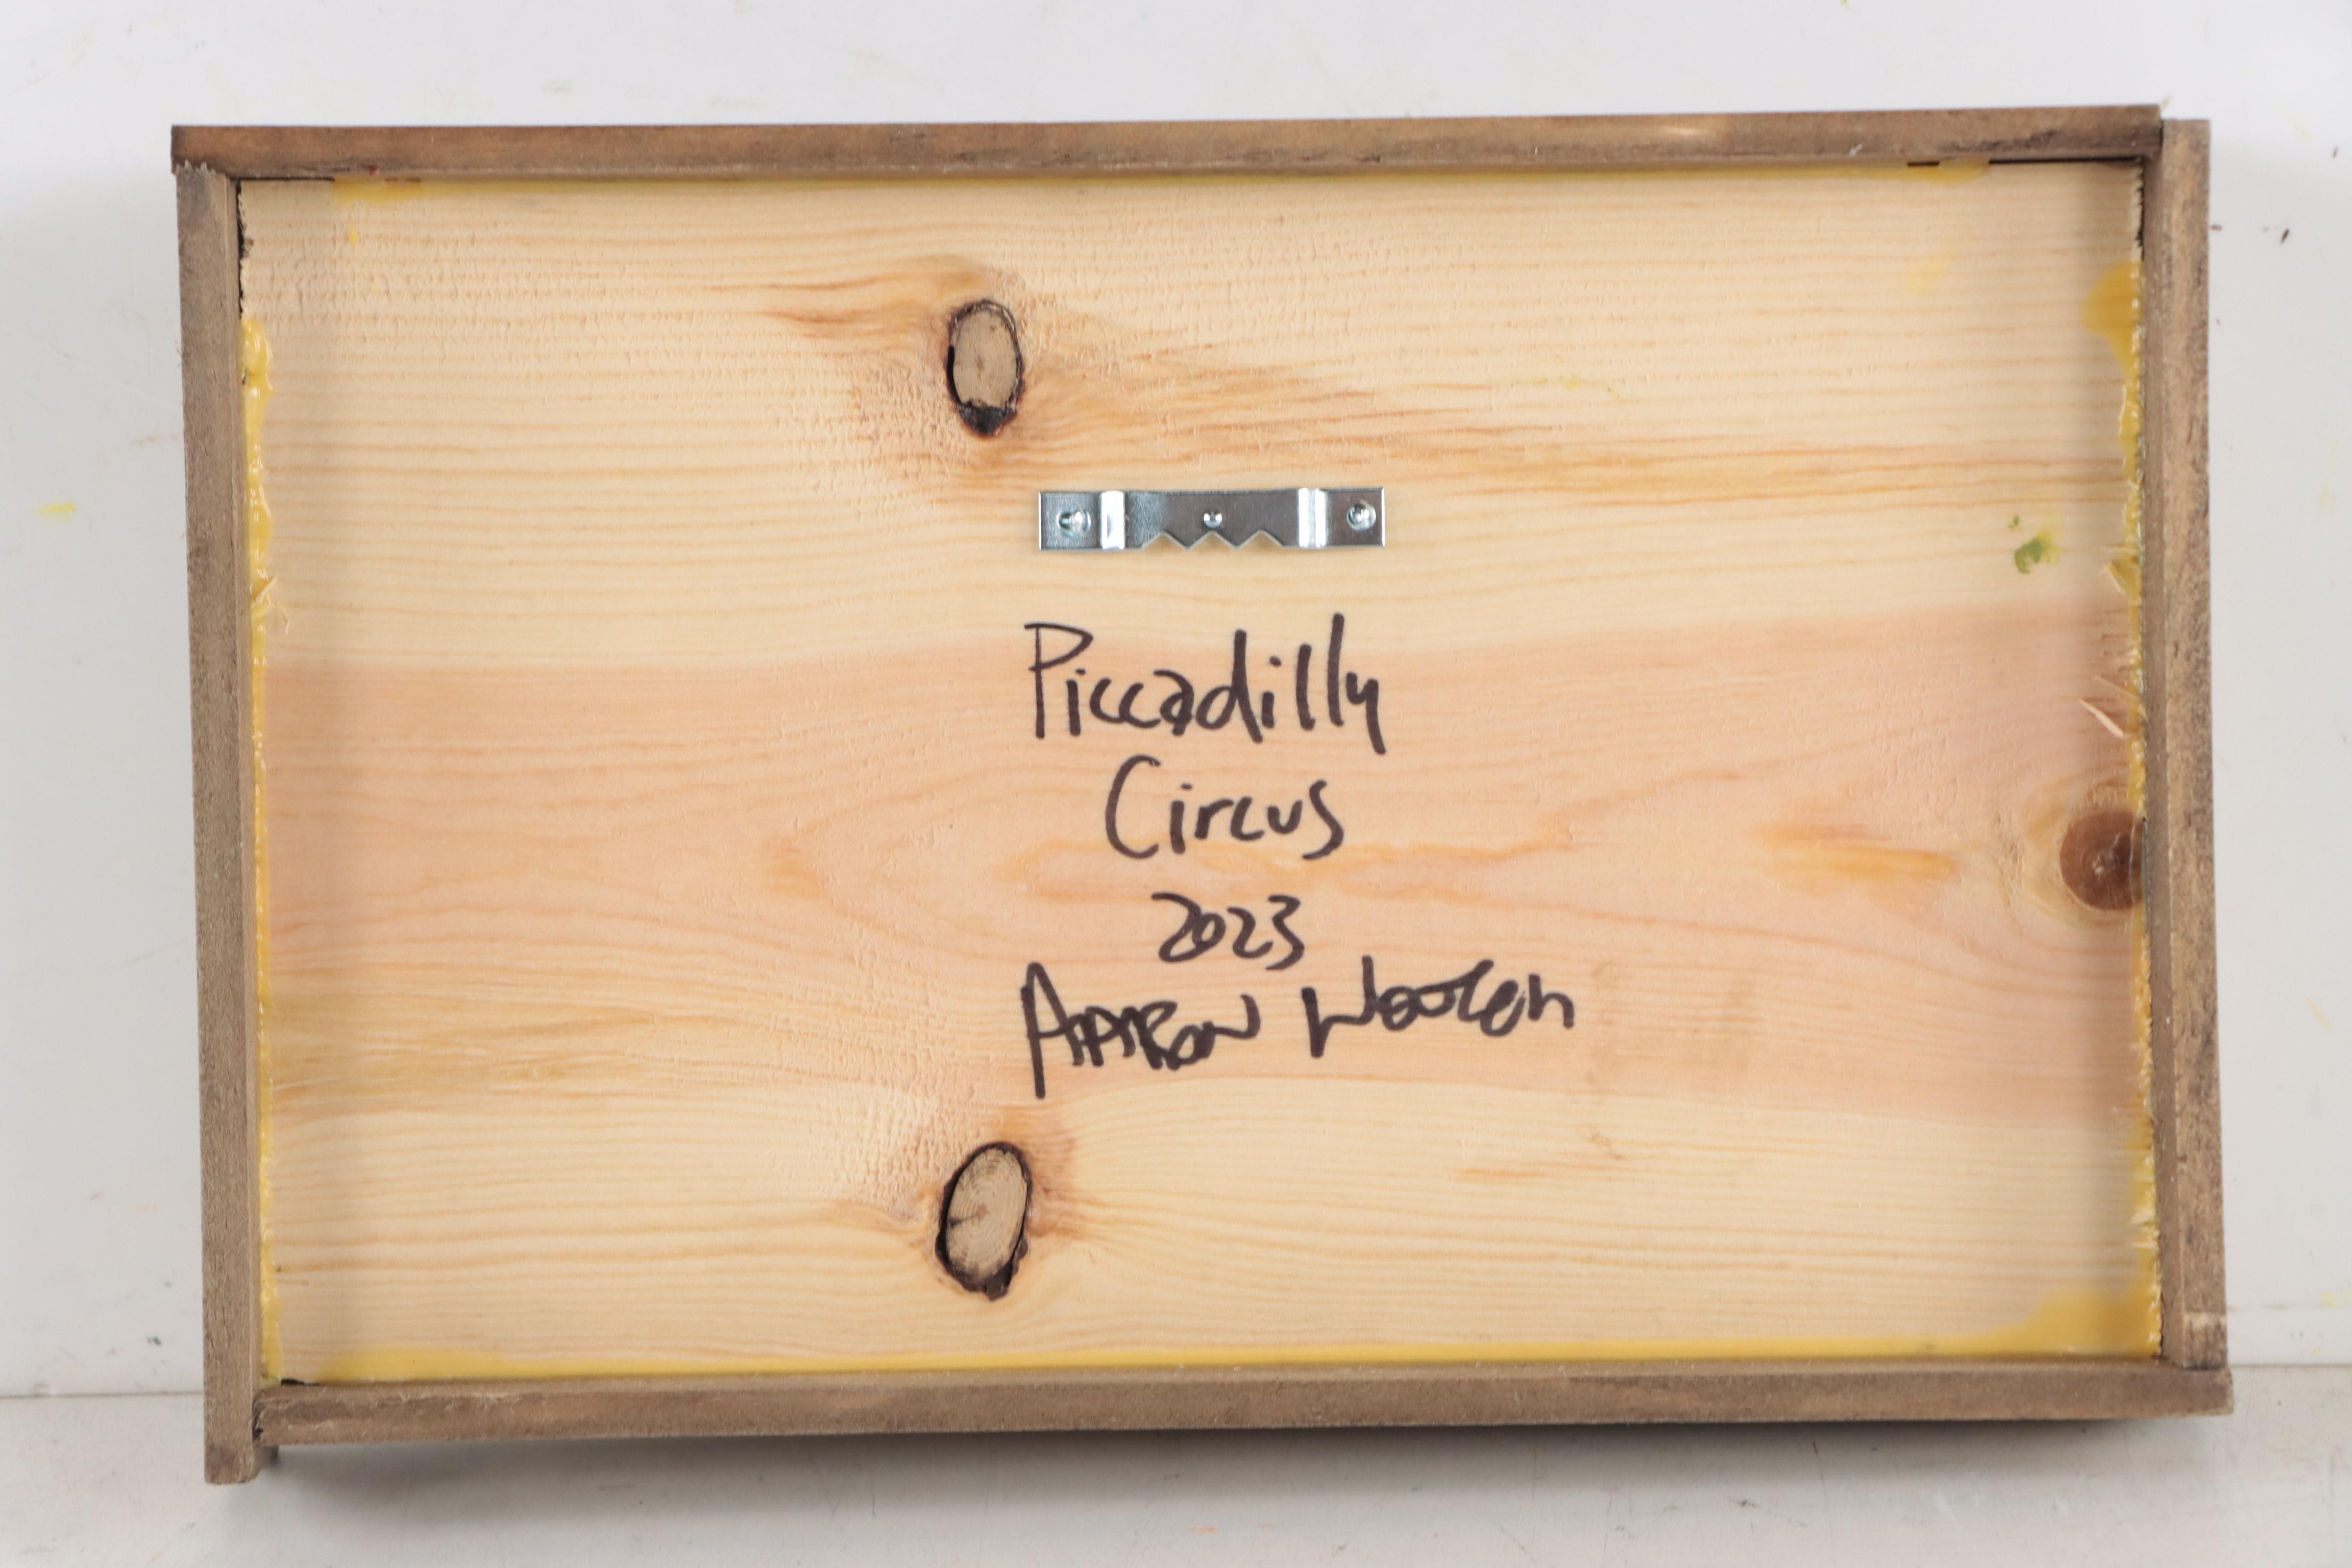 Piccadilly
Circus
2023
AARON Wooten